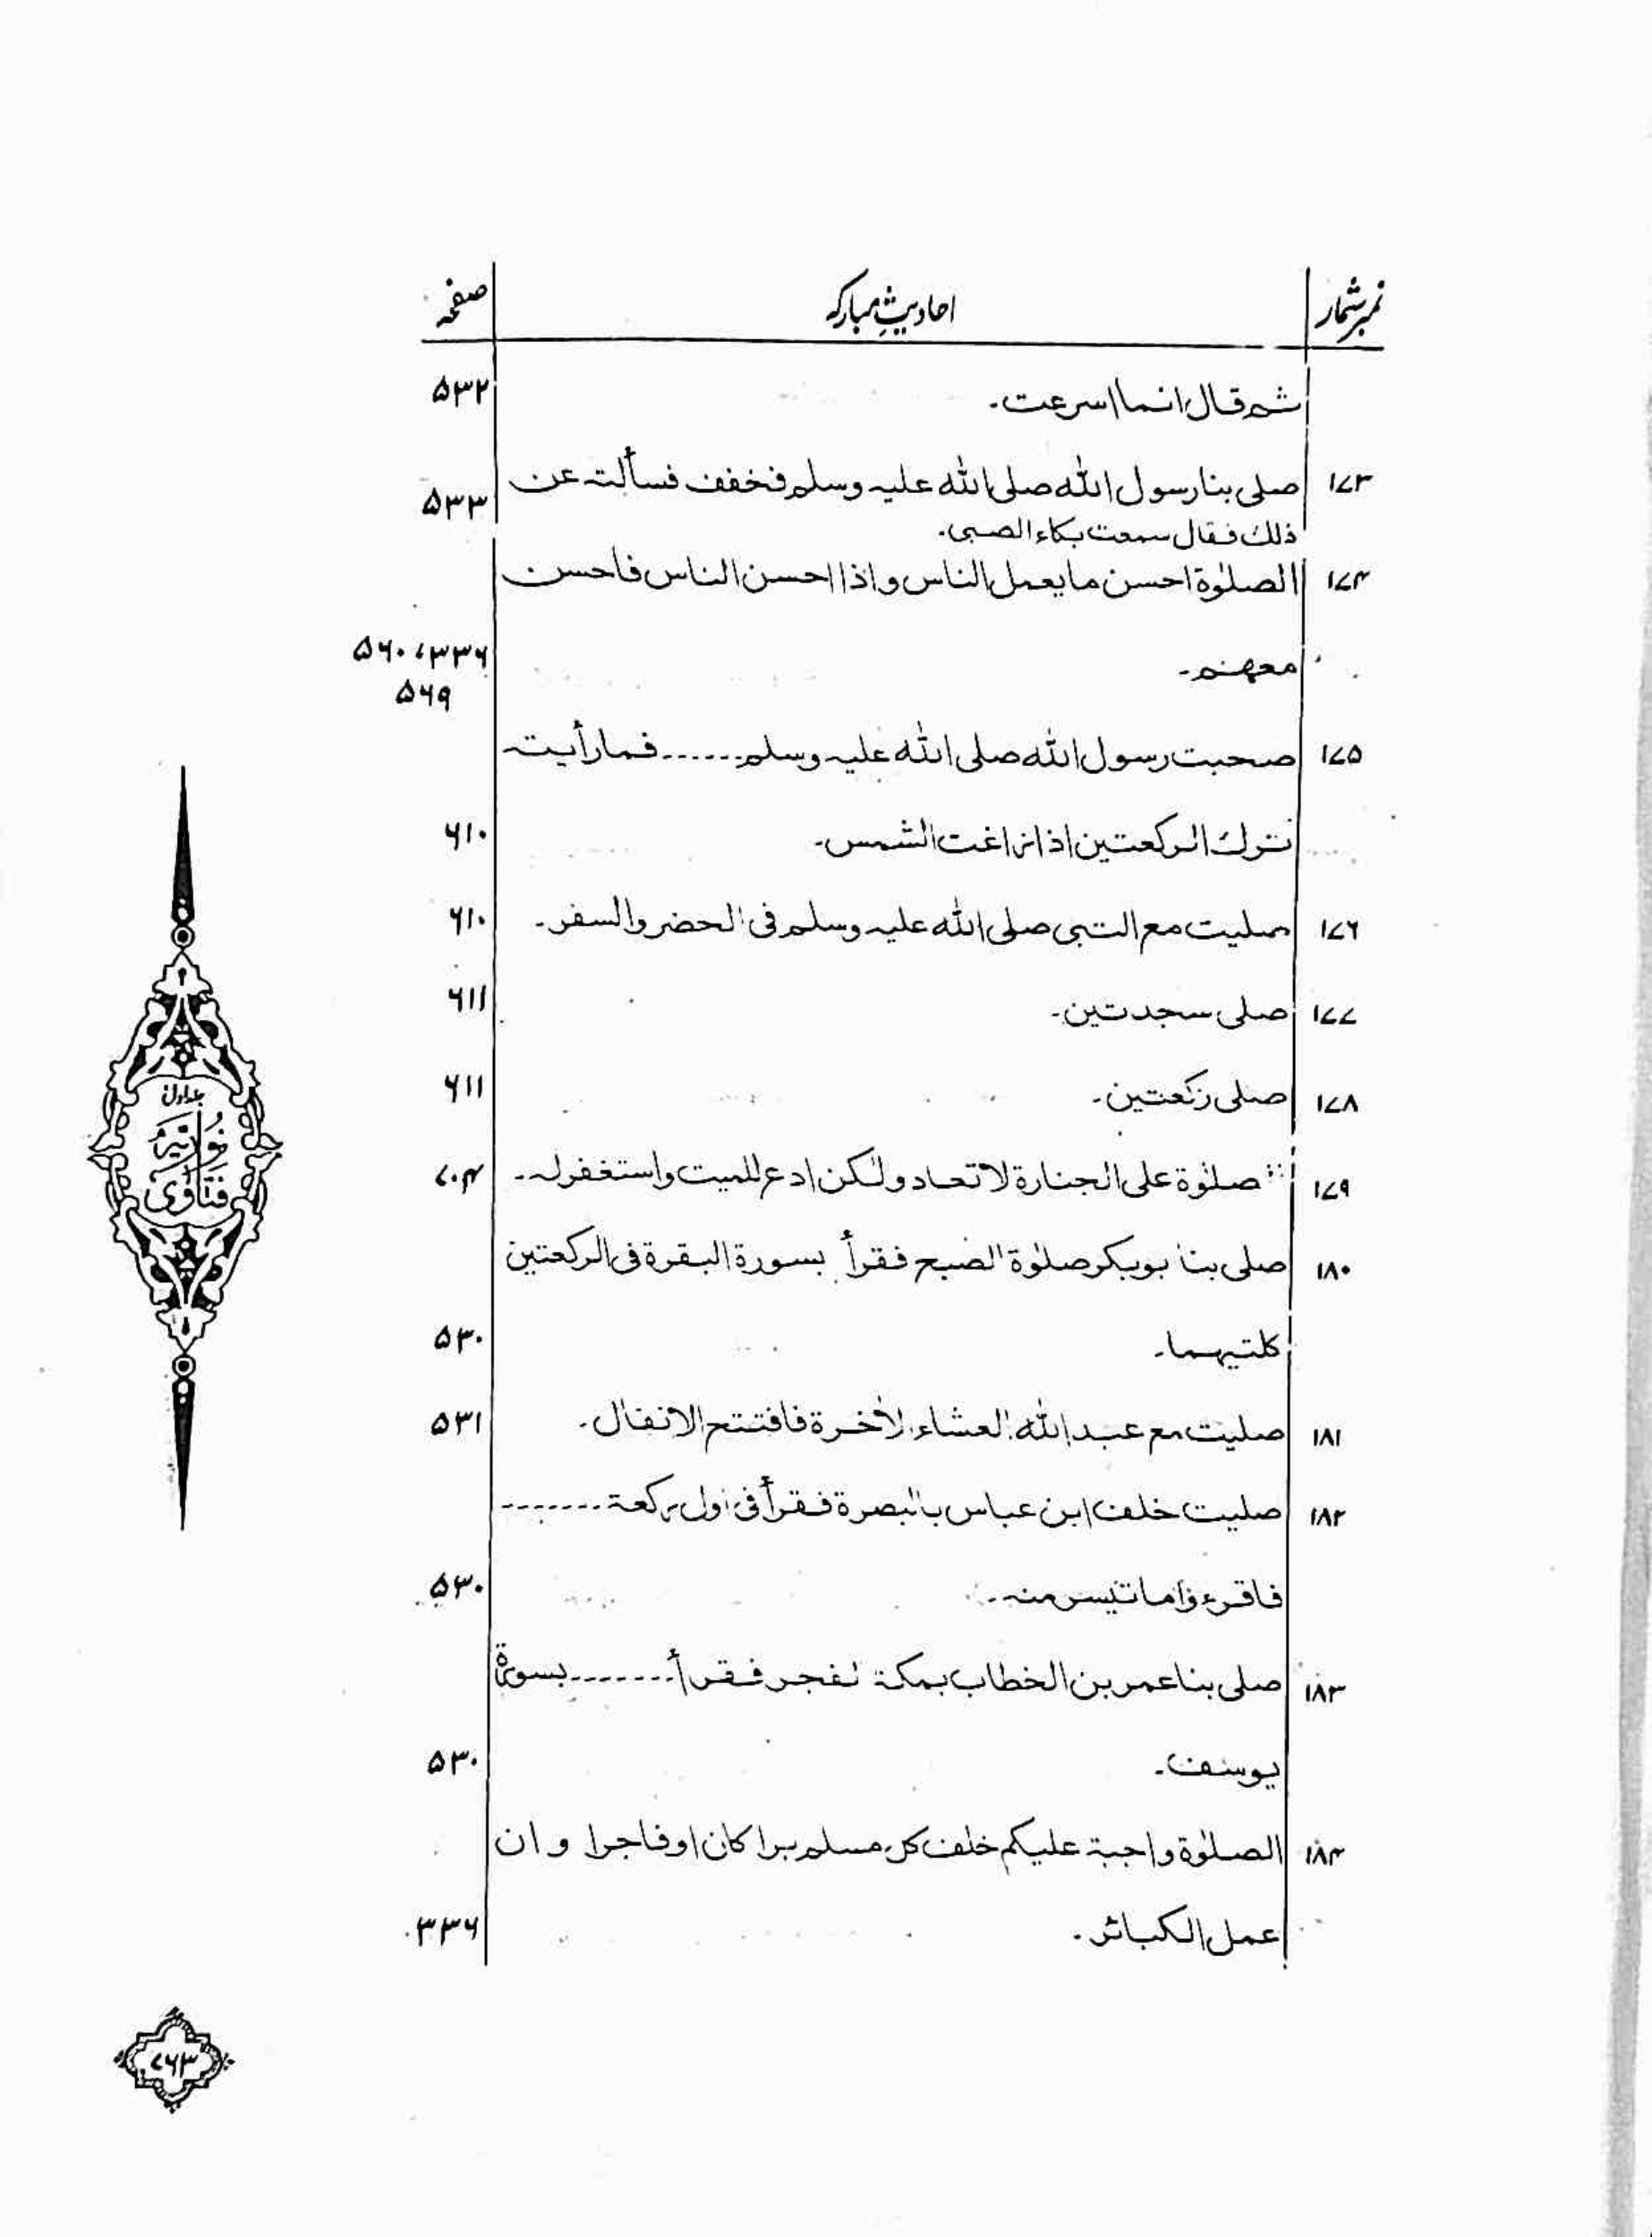 نمبرشمار احادیثِ مبارکہ صفحہ
ثم قال انما اسرعت۔ ۵۳۲
۱۷۳ صلی بنا رسول اللہ صلی اللہ علیہ وسلم فخفف فسألتہ عن ۵۳۳
ذلك فقال سمعت بکاء الصبی۔
۱۷۴ الصلوٰۃ احسن ما یعمل الناس و اذا احسن الناس فاحسن
معھم۔ ۳۳۶، ۵۶۰
۵۶۹
۱۷۵ صحبت رسول اللہ صلی اللہ علیہ وسلم۔۔۔۔۔۔فما رأیتہ
ترك الرکعتین اذا زاغت الشمس۔ ۶۱۰
۱۷۶ صلیت مع النبی صلی اللہ علیہ وسلم فی الحضر والسفر۔ ۶۱۰
۱۷۷ صلی سجدتین۔ ۶۱۱
۱۷۸ صلی رکعتین۔ ۶۱۱
۱۷۹ صلوٰۃ علی الجنازۃ لا تعاد ولکن ادع للمیت واستغفر لہ۔ ۷۰۴
۱۸۰ صلی بنا ابوبکر صلوٰۃ الصبح فقرأ بسورۃ البقرۃ فی الرکعتین
کلتیھما۔ ۵۳۰
۱۸۱ صلیت مع عبداللہ العشاء الاٰخرۃ فافتتح الانفال۔ ۵۳۱
۱۸۲ صلیت خلف ابن عباس بالبصرۃ فقرأ فی اول رکعۃ۔۔۔۔۔۔۔
فاقرءوا ما تیسر منہ۔ ۵۳۰
۱۸۳ صلی بنا عمر بن الخطاب بمکۃ الفجر فقرأ۔۔۔۔۔۔۔بسورۃ
یوسف۔ ۵۳۰
۱۸۴ الصلوٰۃ واجبۃ علیکم خلف کل مسلم برا کان او فاجرا و ان
عمل الکبائر۔ ۳۳۶
جلد اول
نُوریّہ
فتَاوٰی
۷۶۳